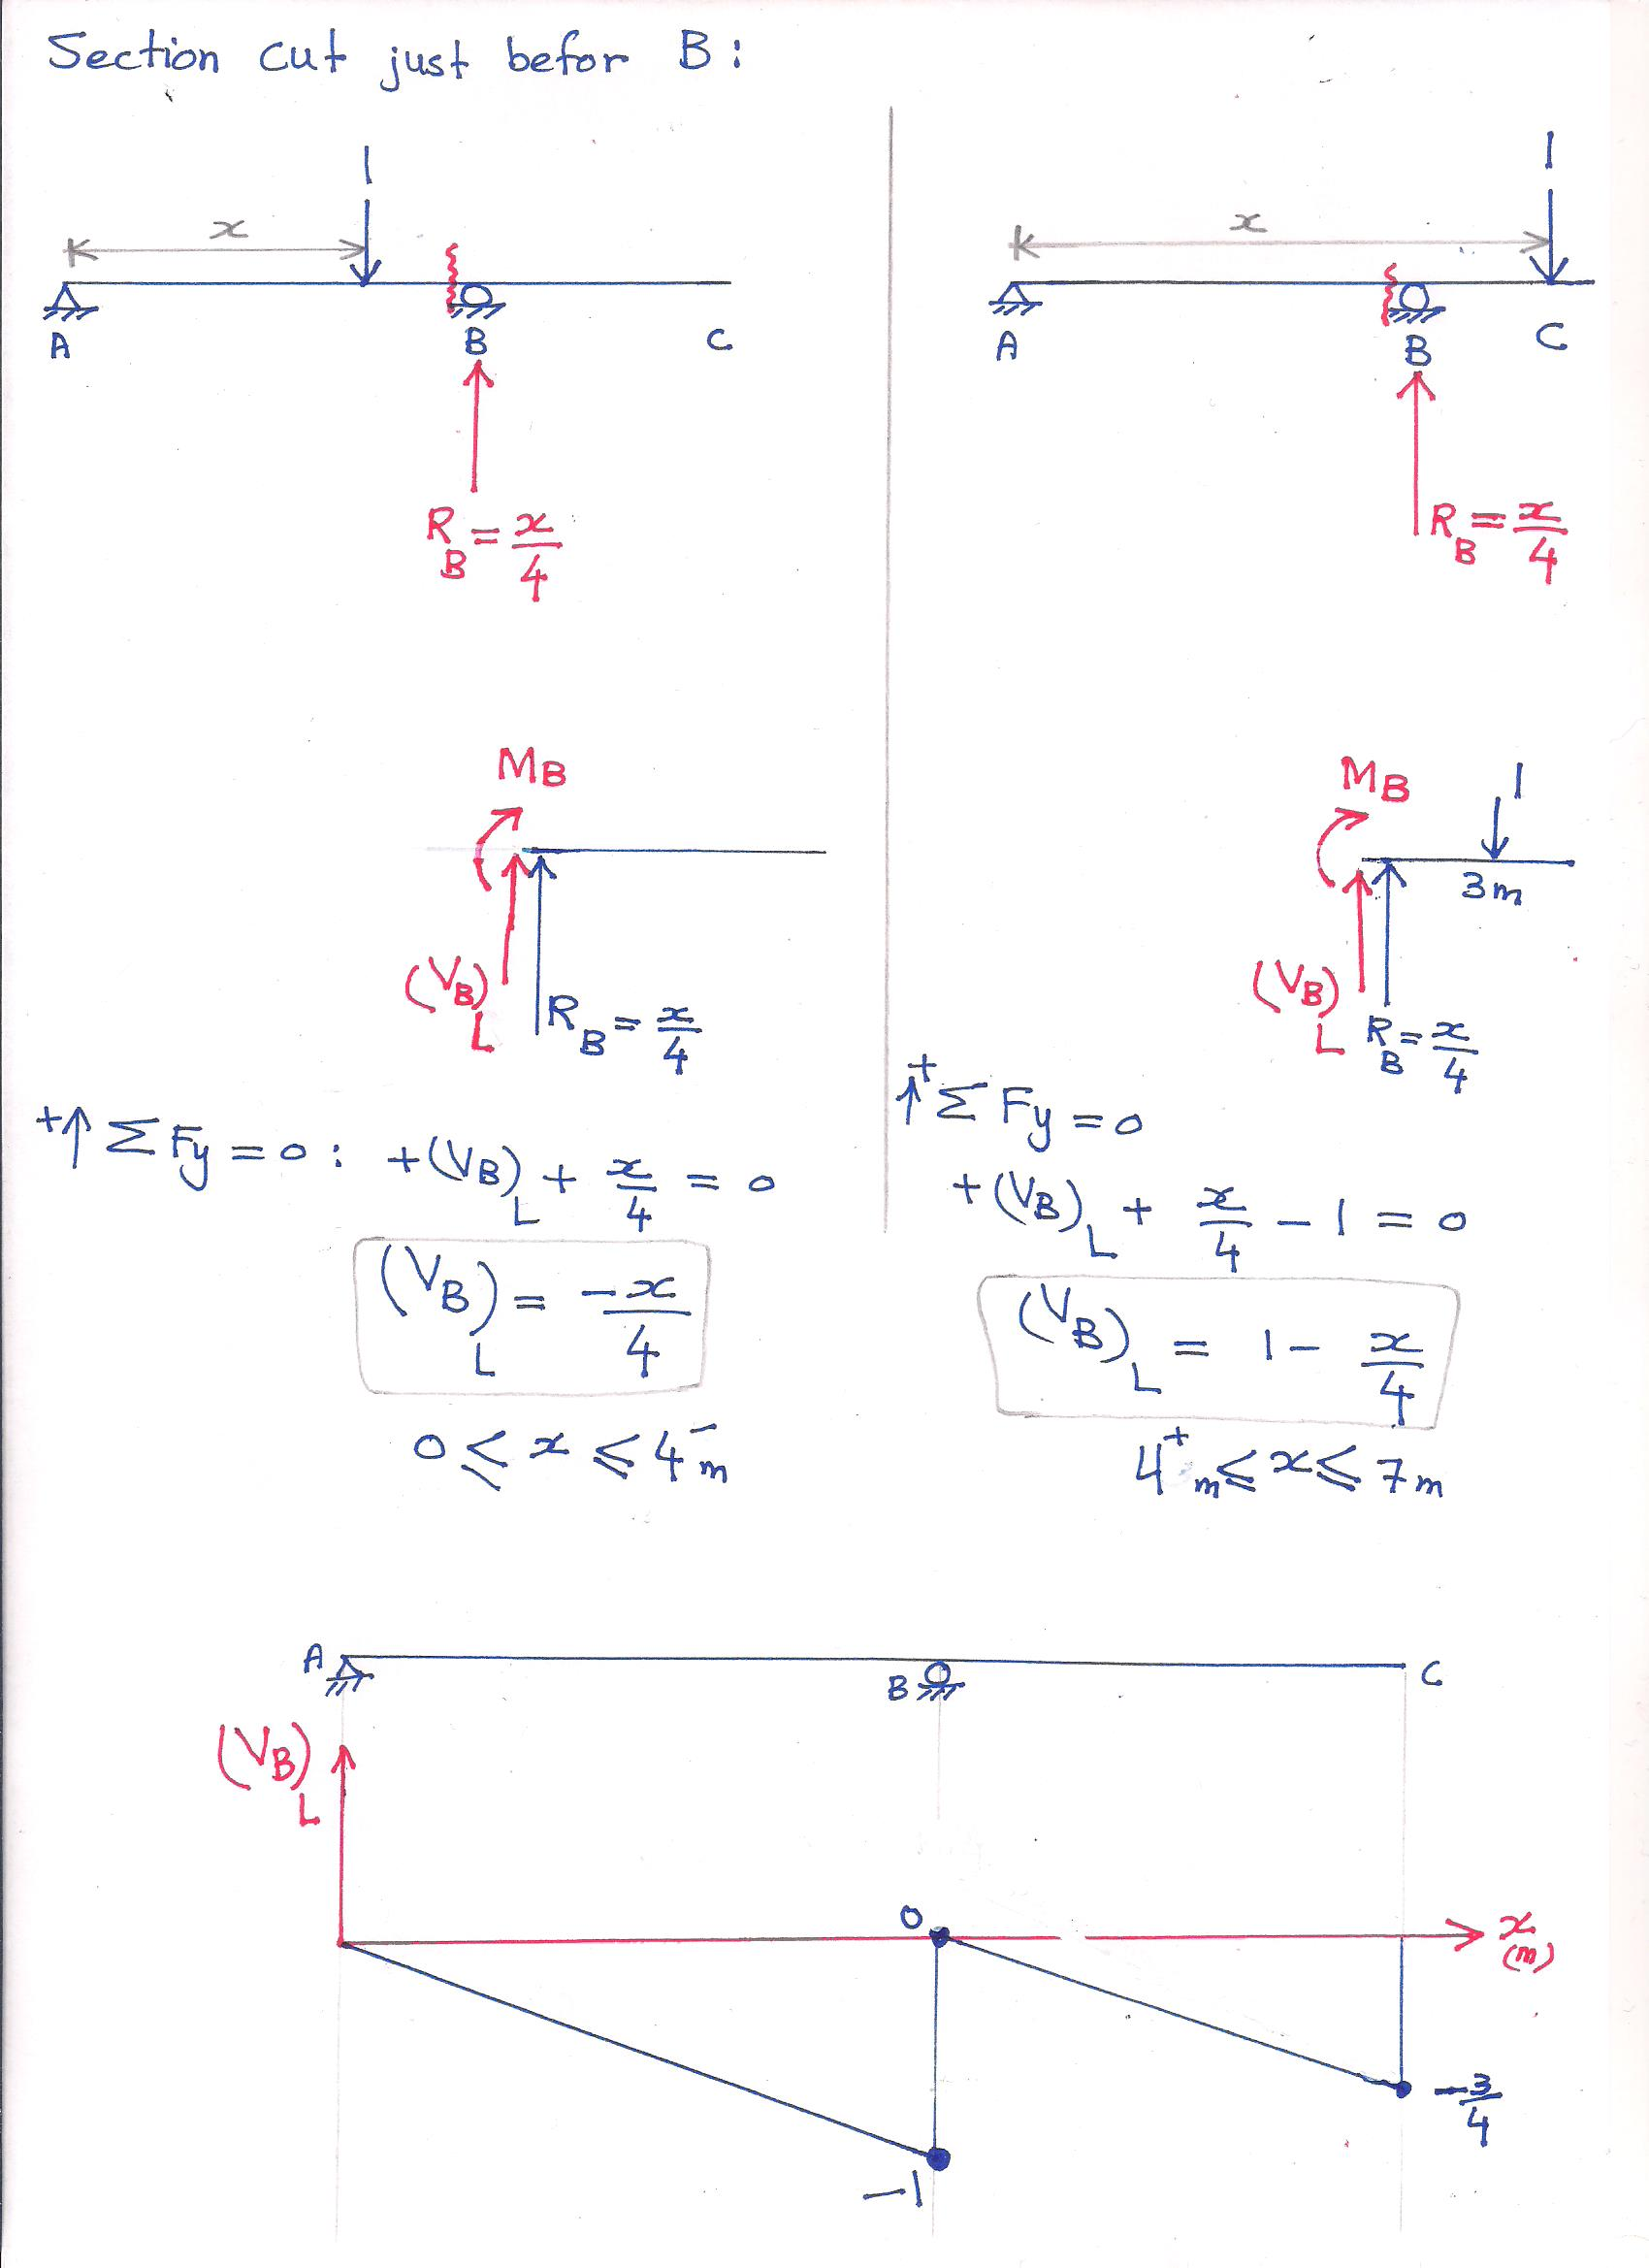 Section cut just befor B:
1
x
A
B
C
R_B = x/4
M_B
(V_B)_L
R_B = x/4
+↑ Σ Fy = 0 : +(V_B)_L + x/4 = 0
(V_B)_L = -x/4
0 ≤ x ≤ 4⁻m
1
x
A
B
C
R_B = x/4
M_B
1
3m
(V_B)_L
R_B = x/4
+↑ Σ Fy = 0
+(V_B)_L + x/4 - 1 = 0
(V_B)_L = 1 - x/4
4⁺m ≤ x ≤ 7m
A
B
C
(V_B)_L
0
x
(m)
-3/4
-1